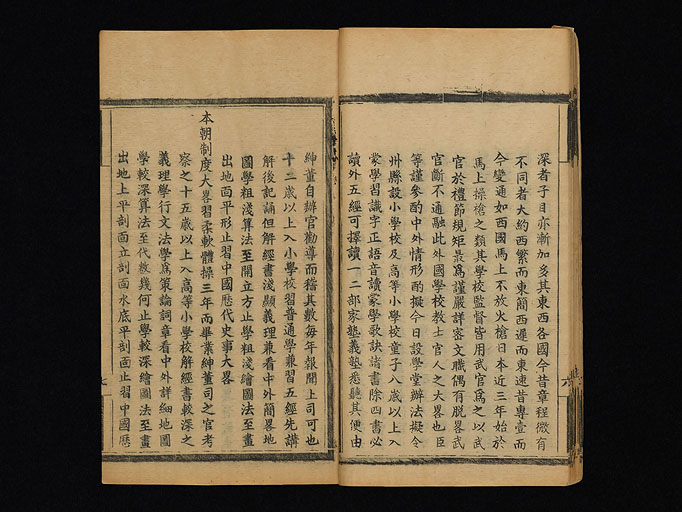 深者子目亦漸加多其東西各國今昔章程微有
不同者大約西繁而東簡西遲而東速昔專壹而
今變通如西國馬上不放火槍日本近三年始於
馬上操槍之類其學校監督皆用武官爲之以武
官於禮節規矩最爲謹嚴詳審文職偶有脫畧武
官斷不通融此外國學校教士官人之大畧也臣
等謹參酌中外情形酌擬今日設學堂辦法擬令
州縣設小學校及高等小學校童子八歲以上入
蒙學習識字正語音讀蒙學歌訣諸書除四書必
讀外五經可擇讀一二部家塾義塾悉聽其便由
紳董自辦官勸導而稽其數每年報聞上司可也
十二歲以上入小學校習普通學兼習五經先講
解後記誦但解經書淺顯義理兼看中外簡畧地
圖學粗淺算法至開立方止學粗淺繪圖法至畫
出地面平形止習中國歷代史事大畧
本朝制度大畧習柔軟體操三年而畢業紳董司之官考
察之十五歲以上入高等小學校解經書較深之
義理學行文法學爲策論詞章看中外詳細地圖
學較深算法至代數幾何止學較深繪圖法至畫
出地上平剖面立剖面水底平剖面止習中國歷